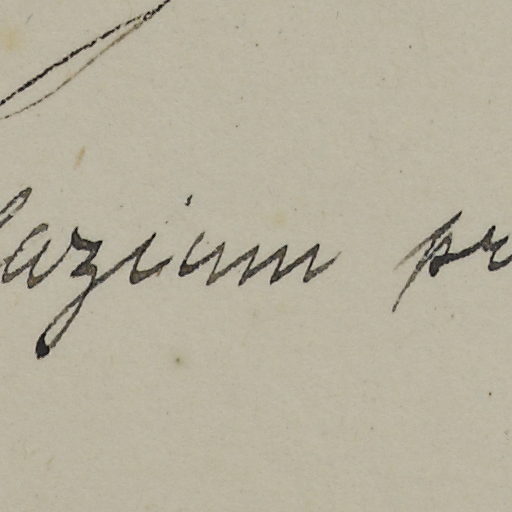 lazium pr